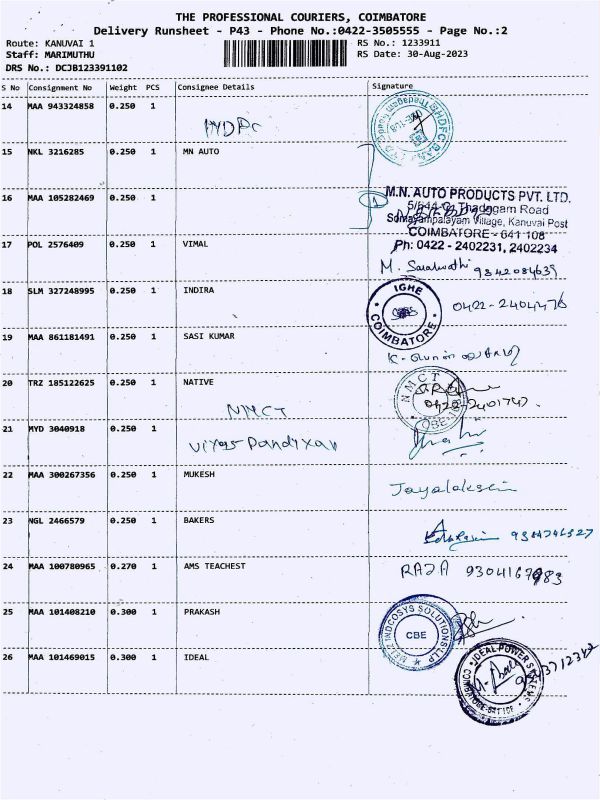 THE PROFESSIONAL COURIERS, COIMBATORE
Delivery Runsheet - P43 - Phone No.:0422-3505555 - Page No.:2
Route: KANUVAI 1
Staff: MARIMUTHU
DRS No.: DCJB123391102
RS No.: 1233911
RS Date: 30-Aug-2023
S No Consignment No Weight PCS Consignee Details Signature
14 MAA 943324858 0.250 1
HDFC BANK LTD
15 NKL 3216285 0.250 1 MN AUTO
16 MAA 105282469 0.250 1
M.N. AUTO PRODUCTS PVT. LTD.
5/644-C, Thadagam Road
Somayampalayam Village, Kanuvai Post
COIMBATORE - 641 108
Ph: 0422 - 2402231, 2402234
17 POL 2576409 0.250 1 VIMAL M. Saralwathi
18 SLM 327248995 0.250 1 INDIRA IGHE COIMBATORE 0422-2404476
19 MAA 861181491 0.250 1 SASI KUMAR
20 TRZ 185122625 0.250 1 NATIVE NMCT
NMCT
21 MYD 3040918 0.250 1
22 MAA 300267356 0.250 1 MUKESH
23 NGL 2466579 0.250 1 BAKERS
24 MAA 100780965 0.270 1 AMS TEACHEST RAJA
25 MAA 101408210 0.300 1 PRAKASH MELZ INDCOSYS SOLUTIONS LLP CBE
26 MAA 101469015 0.300 1 IDEAL IDEAL POWER SYSTEMS